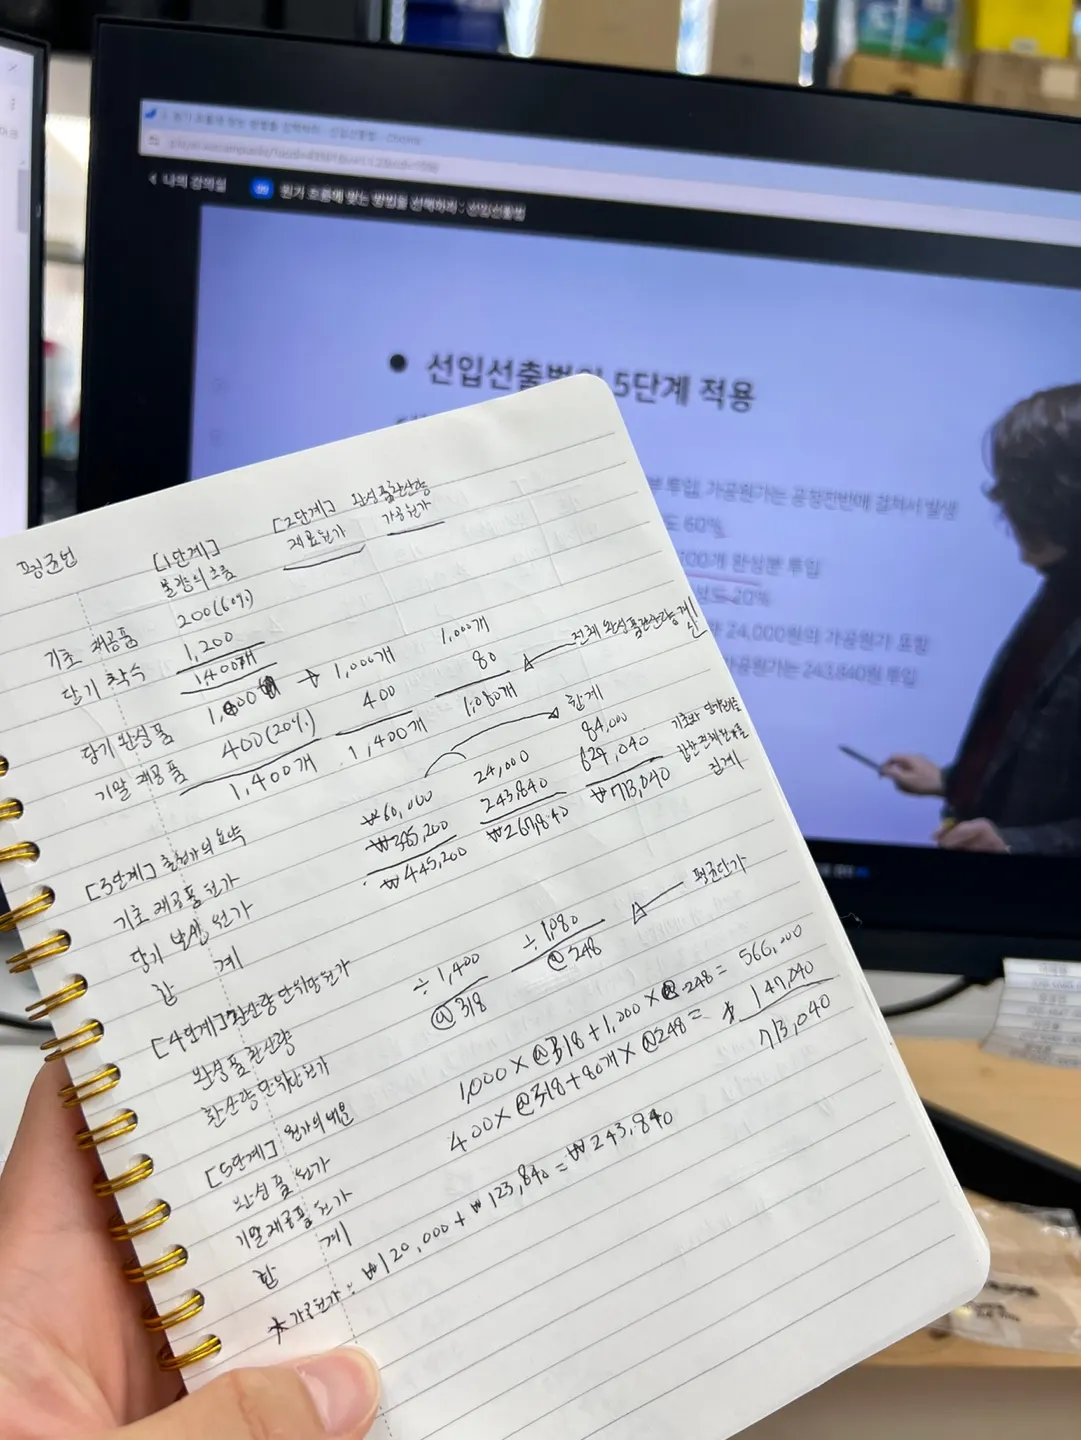 < 나의 강의실
원가 흐름에 맞는 방법을 선택하라 : 선입선출법
• 선입선출법의 5단계 적용
투입, 가공원가는 공정전반에 걸쳐서 발생
도 60%
200개 완성분 투입
성도 20%
24,000원의 가공원가 포함
가공원가는 243,840원 투입
평균법
[1단계]
물량의 흐름
[2단계] 완성품환산량
재료원가 가공원가
기초 재공품 200(60%)
당기 착수 1,200
1,400개
당기 완성품 1,000 → 1,000개 1,000개
기말 재공품 400(20%) 400 80 전체 완성품환산량 계산
1,400개 1,400개 1,080개
[3단계] 총원가의 요약 합계
기초 재공품 원가 ₩60,000 24,000 84,000
당기 발생 원가 ₩385,200 243,840 629,040
합 계 ₩445,200 ₩267,840 ₩713,040
집계
[4단계] 환산량 단위당 원가
완성품 환산량 ÷ 1,400 ÷ 1,080 평균단가
환산량 단위당 원가 @318 @248
[5단계] 원가의 배분
완성품 원가 1,000 × @318 + 1,000 × @248 = 566,000
기말 재공품 원가 400 × @318 + 80개 × @248 = 147,040
합 계 713,040
* 가공원가 : ₩120,000 + ₩123,840 = ₩243,840